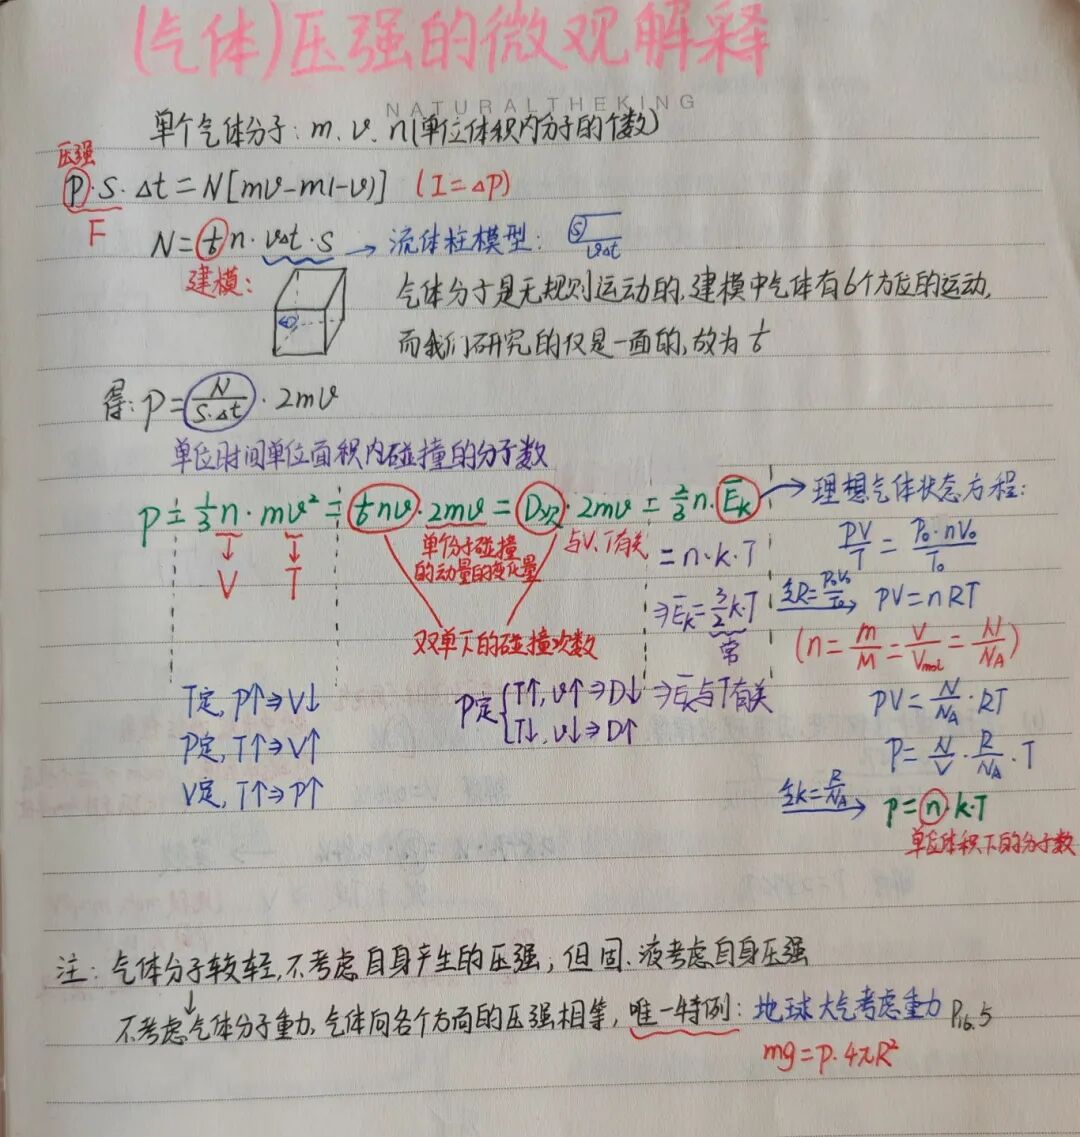 (气体)压强的微观解释
NATURALTHEKING
单个气体分子：m、v、n(单位体积内分子的个数)
压强
p·S·Δt=N[mv-m(-v)] (I=Δp)
F
N=1/6 n·vΔt·S → 流体柱模型: S vΔt
建模:
v
气体分子是无规则运动的,建模中气体有6个方位的运动,
而我们研究的仅是一面的,故为1/6
得:p=N/(S·Δt)·2mv
单位时间单位面积内碰撞的分子数
p=1/3 n·mv²=1/6 nv·2mv=D双·2mv=2/3 n·Ēk → 理想气体状态方程:
↓V ↓T
单个分子碰撞
的动量的变化量
与V、T有关
双单下的碰撞次数
=n·k·T
⇒Ēk=3/2 k·T
常
⇒Ēk与T有关
PV/T=P₀·nV₀/T₀
令R=P₀V₀/T₀ → PV=nRT
(n=m/M=V/Vmol=N/NA)
PV=N/NA·RT
P=N/V·R/NA·T
令k=R/NA → p=n·k·T
单位体积下的分子数
T定,P↑⇒V↓
P定,T↑⇒V↑
V定,T↑⇒P↑
P定{T↑,v↑⇒D↓
T↓,v↓⇒D↑
注：气体分子较轻,不考虑自身产生的压强；但固、液考虑自身压强
↓
不考虑气体分子重力,气体向各个方向的压强相等,唯一特例：地球大气考虑重力 P16.5
mg=p·4πR²